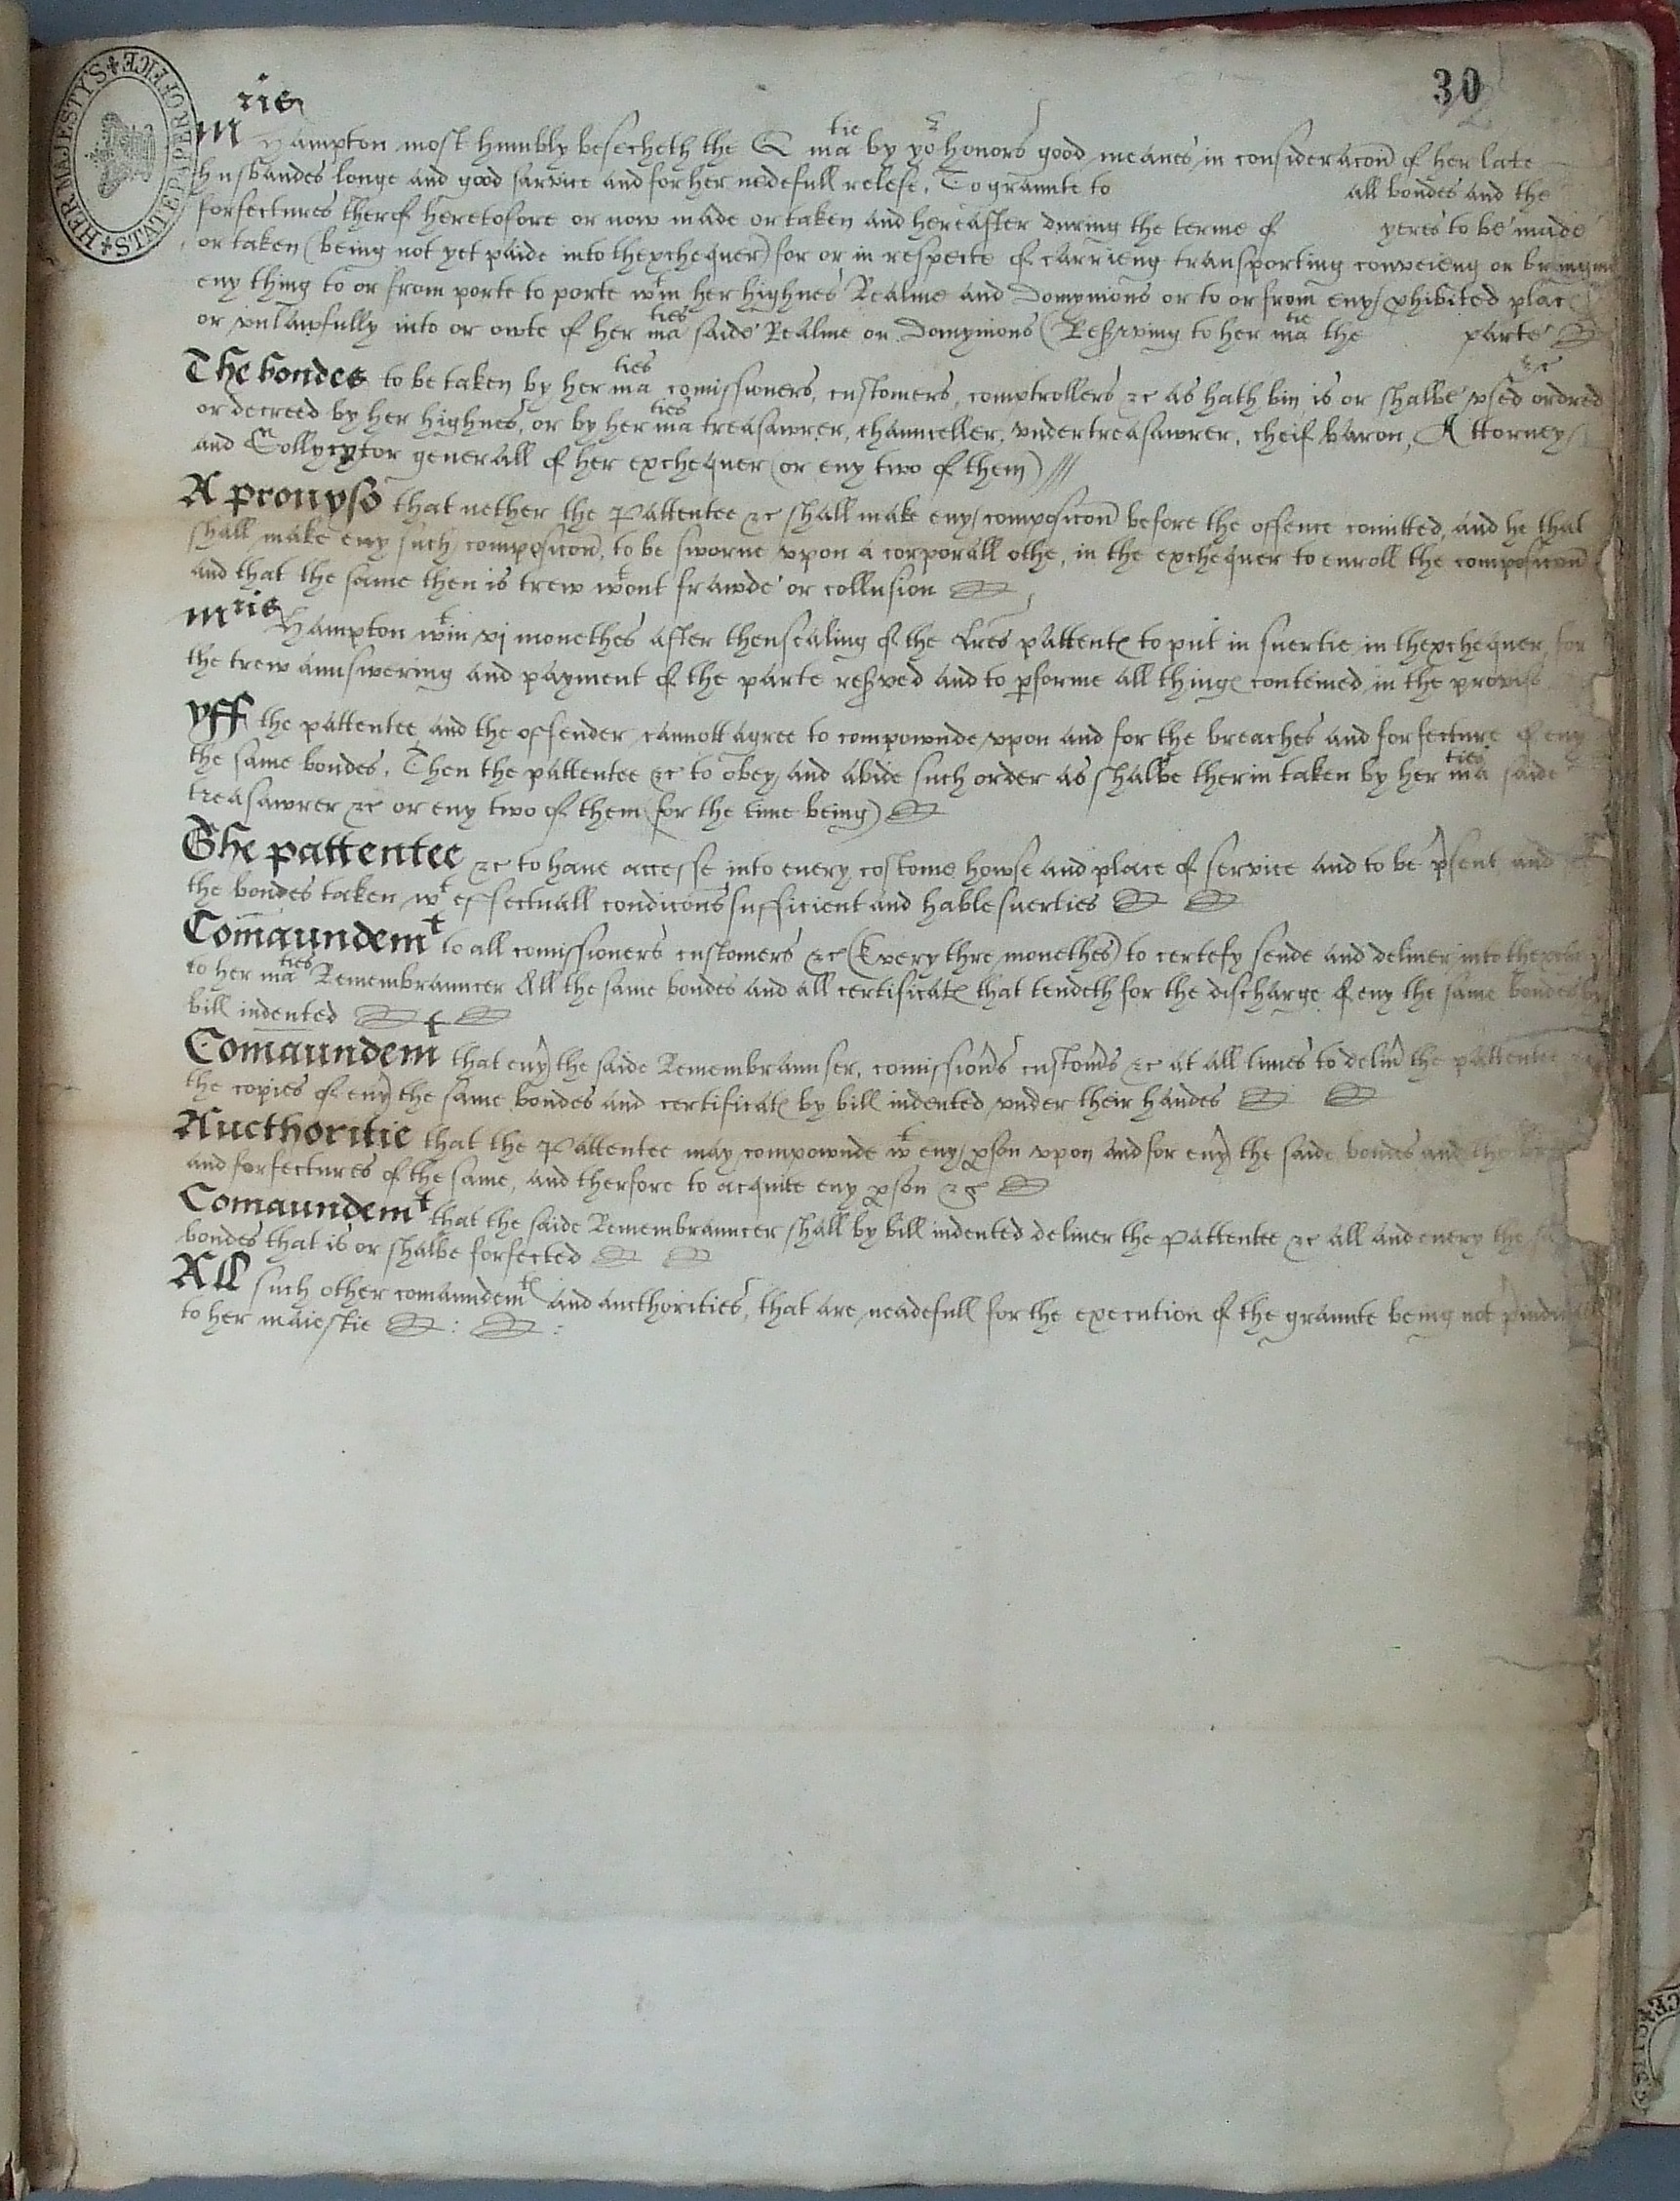 30
HER MAJESTY'S STATE PAPER OFFICE
Mris Hampton most humbly besecheth the Q matie by yor honors good meanes in consideracon of her late
husbandes longe and good sarvice and for her nedefull relefe. To graunte to all bondes and the
forfectures therof heretofore or now made or taken and hereafter during the terme of yeres to be made
or taken (being not yet paide into thexchequer) for or in respecte of carrieng transporting conveieng or bringing
eny thing to or from porte to porte wtin her highnes Realme and Domynions or to or from eny phibited place
or unlawfully into or owte of her maties saide Realme or Domynions (Resrving to her matie the parte
The bondes to be taken by her maties comissioners, customers, comptrollers &c as hath bin is or shalbe used ordred
or decreed by her highnes, or by her maties treasawrer, chaunceller, undertreasawrer, cheif baron, Attorney
and Sollycytor generall of her exchequer (or eny two of them)
A provyso that nether the Pattentee &c shall make eny composicon before the offence comitted, and he that
shall make eny such composicon, to be sworne upon a corporall othe, in the exchequer to enroll the composicon
and that the same then is trew wtout frawde or collusion
Mris Hampton wtin vj monethes after thensealing of the lres pattents to put in suertie in thexchequer for
the trew aunswering and payment of the parte resrved and to pforme all things conteined in the proviso
yff the pattentee and the offender cannott agree to compownde upon and for the breaches and forfecture of eny
the same bondes. Then the pattentee &c to obey and abide such order as shalbe therin taken by her maties saide
treasawrer &c or eny two of them (for the time being)
The pattentee &c to have accesse into every costome howse and place of service and to be psent and
the bondes taken wt effectuall condicons sufficient and hable suerties
Comaundemt to all comissioners customers &c (Every thre monethes) to certefy sende and deliver into
to her maties Remembrauncer All the same bondes and all certificats that tendeth for the discharge of eny the same bondes by
bill indented
Comaundemt that eny the saide Remembraunser, comissionrs customrs &c at all times to delivr the pattentee
the copies of eny the same bondes and certificats by bill indented under their handes
Aucthoritie that the Pattentee may compownde wt eny pson upon and for eny the saide bondes and the
and forfectures of the same, and therfore to acquite eny pson &c
Comaundemt that the saide Remembrauncer shall by bill indented deliver the Pattentee &c all and every the
bondes that is or shalbe forfected
All such other comaundemts and aucthorities, that are neadefull for the execution of the graunte being not
to her maiestie